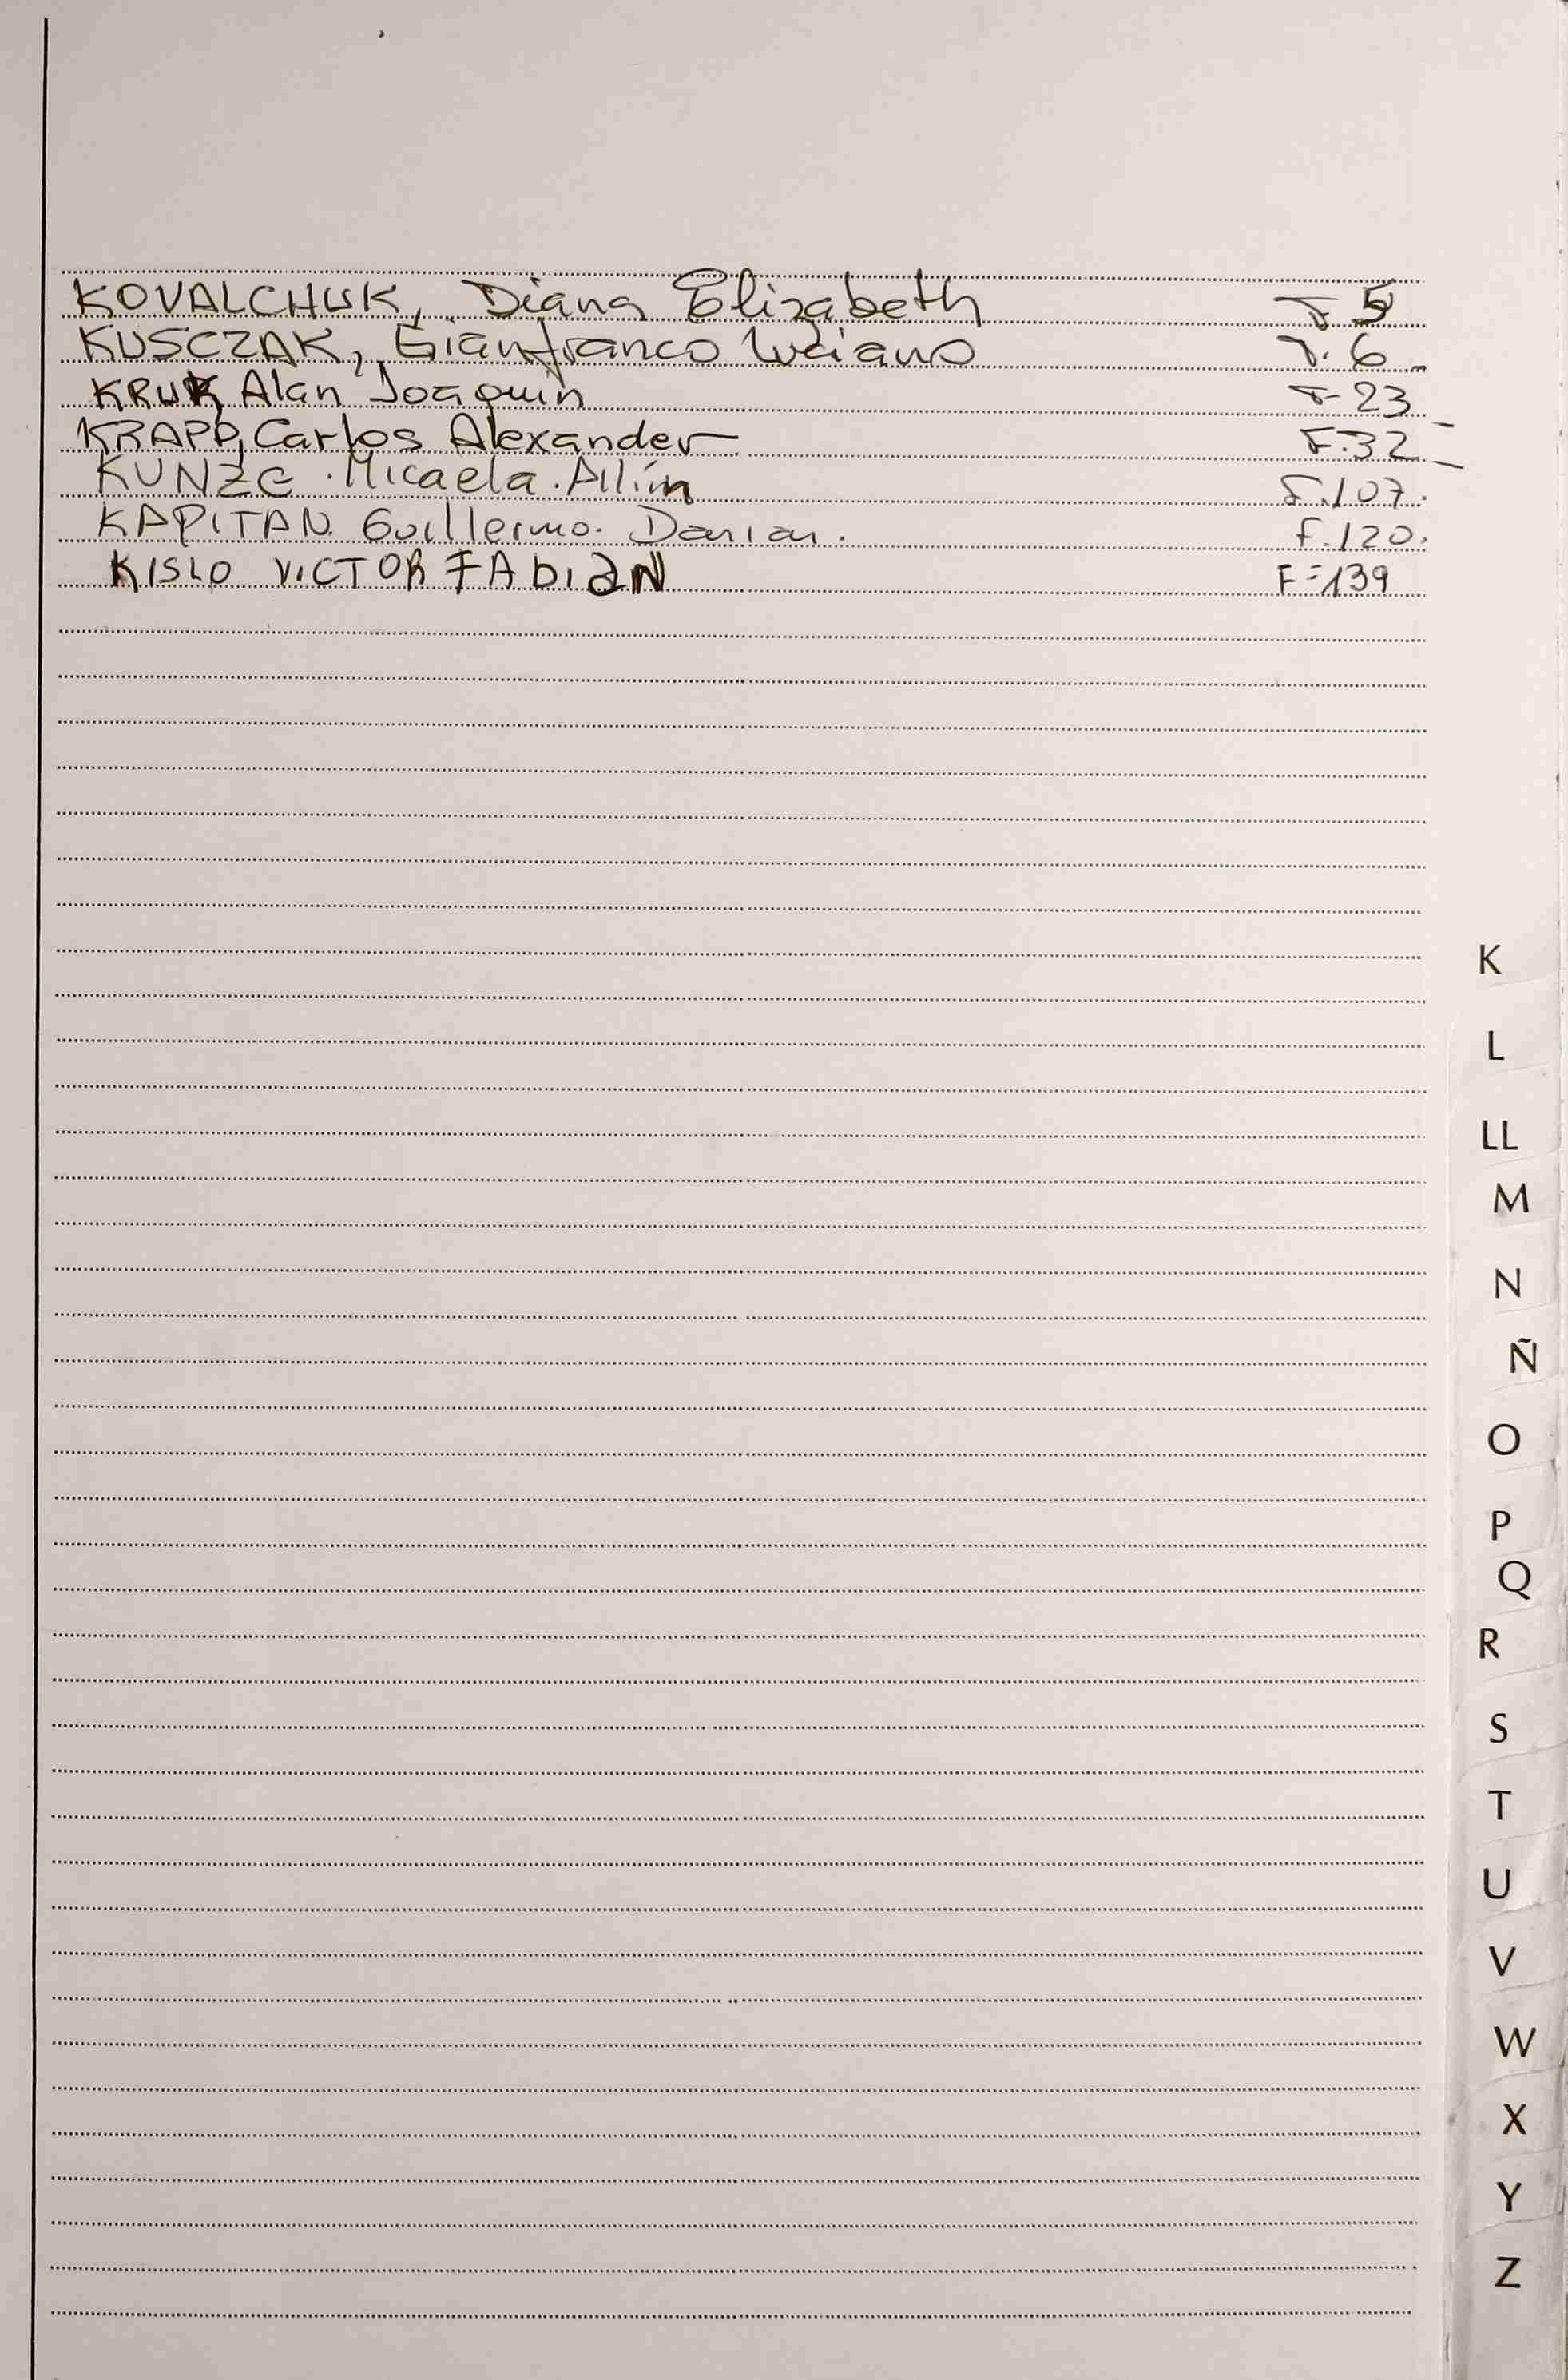 KOVALCHUK, Diana Elizabeth F 5
KUSCZAK, Gianfranco Luciano F. 6
KRUK, Alan Joaquin F- 23
KRAPP, Carlos Alexander F. 32
KUNZE Micaela Ailín F. 107.
KAPITAN Guillermo Darian. F. 120.
KISLO VICTOR FABIAN F= 139
K
L
LL
M
N
Ñ
O
P
Q
R
S
T
U
V
W
X
Y
Z